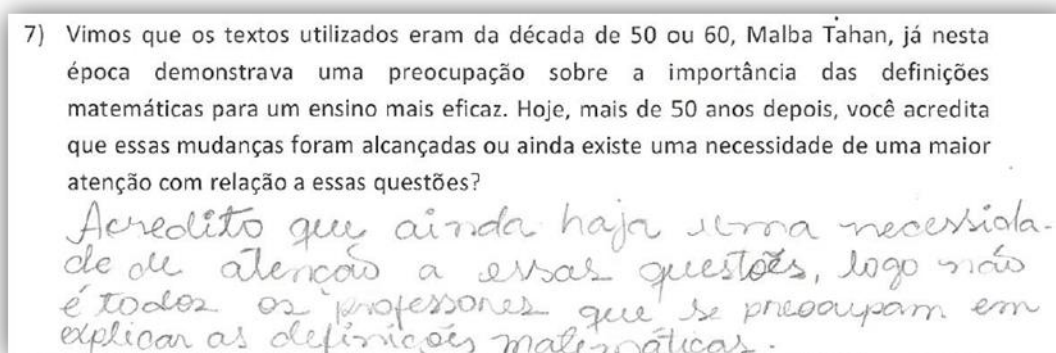 7) Vimos que os textos utilizados eram da década de 50 ou 60, Malba Tahan, já nesta
época demonstrava uma preocupação sobre a importância das definições
matemáticas para um ensino mais eficaz. Hoje, mais de 50 anos depois, você acredita
que essas mudanças foram alcançadas ou ainda existe uma necessidade de uma maior
atenção com relação a essas questões?
Acredito que ainda haja uma necessida-
de de atencão a essas questões, logo não
é todos os professores que se preocupam em
explicar as definições matemáticas.